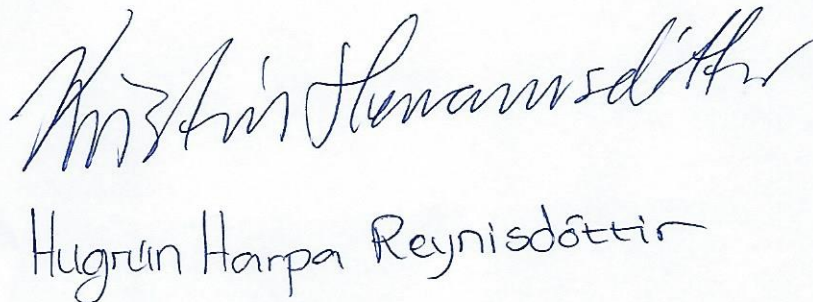 Kristín Hermannsdóttir
Hugrún Harpa Reynisdóttir